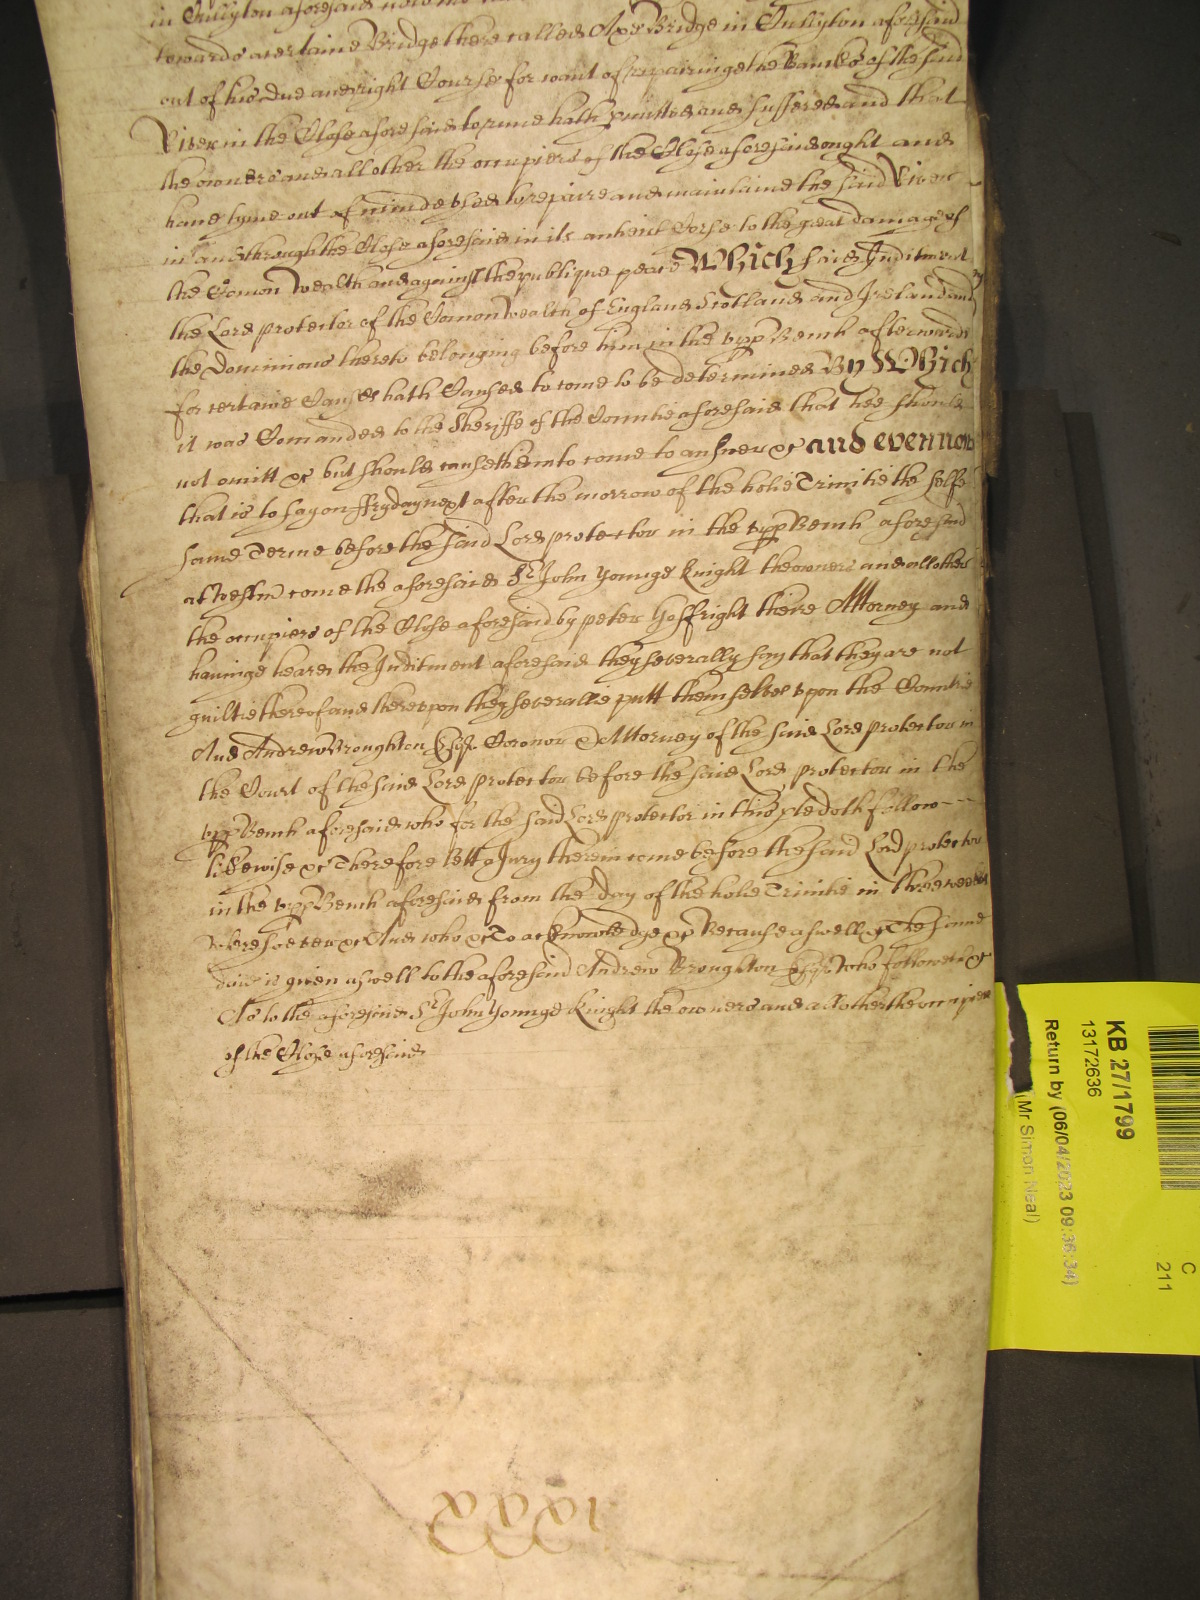 in Cullyton aforesaid
towards a certaine Bridge there called Axe Bridge in Cullyton aforesaid
out of his due and right Course for want of repairinge the Banckes of the said
River in the Close aforesaid to runne hath p'mitted and suffered and that
the owners and all other the occupiers of the Close aforesaid ought and
have tyme out of minde used to repaire and maintaine the said River
in and through the Close aforesaid in its antient Corse to the great damage of
the Comon Wealth and against the publique peace Which said Inditment
the Lord protector of the Comon Wealth of England Scotland and Ireland and
the Dominions thereto belonging before him in the upp Bench afterwards
for certaine Causes hath Caused to come to be determined By Which
it was Comanded to the Sheriffe of the Countie aforesaid that hee should
not omitt &c but should cause them to come to answer &c and even now
that is to say on ffryday next after the morrow of the holie Trinitie the selfe
same Terme before the said Lord protector in the upp Bench aforesaid
at Westm' come the aforesaid Sr. John Younge Knight the owners and all other
the occupiers of the Close aforesaid by peter Goffright theire Attorney and
havinge heard the Inditment aforesaid they severally say that they are not
guiltie thereof and thereupon they severallie putt themselves upon the Countrie
And Andrew Broughton Esqr. Coronor & Attorney of the said Lord protector in
the Court of the said Lord protector before the said Lord protector in the
upp Bench aforesaid who for the said Lord protector in this p'te doth follow ---
likewise &c Therefore lett a Jury therein come before the said Lord protector
in the upp Bench aforesaid from the day of the holie Trinitie in three weekes
wheresoever &c And who &c To acknowledge &c Because aswell &c The same
day is given aswell to the aforesaid Andrew Broughton Esqr. who followeth &c
As to the aforesaid Sr. John Younge Knight the owners and all other the occupiers
of the Close aforesaid
KB 27/1799
13172636
Return by (06/04/2023 09:36:34)
(Mr Simon Neal)
C
211